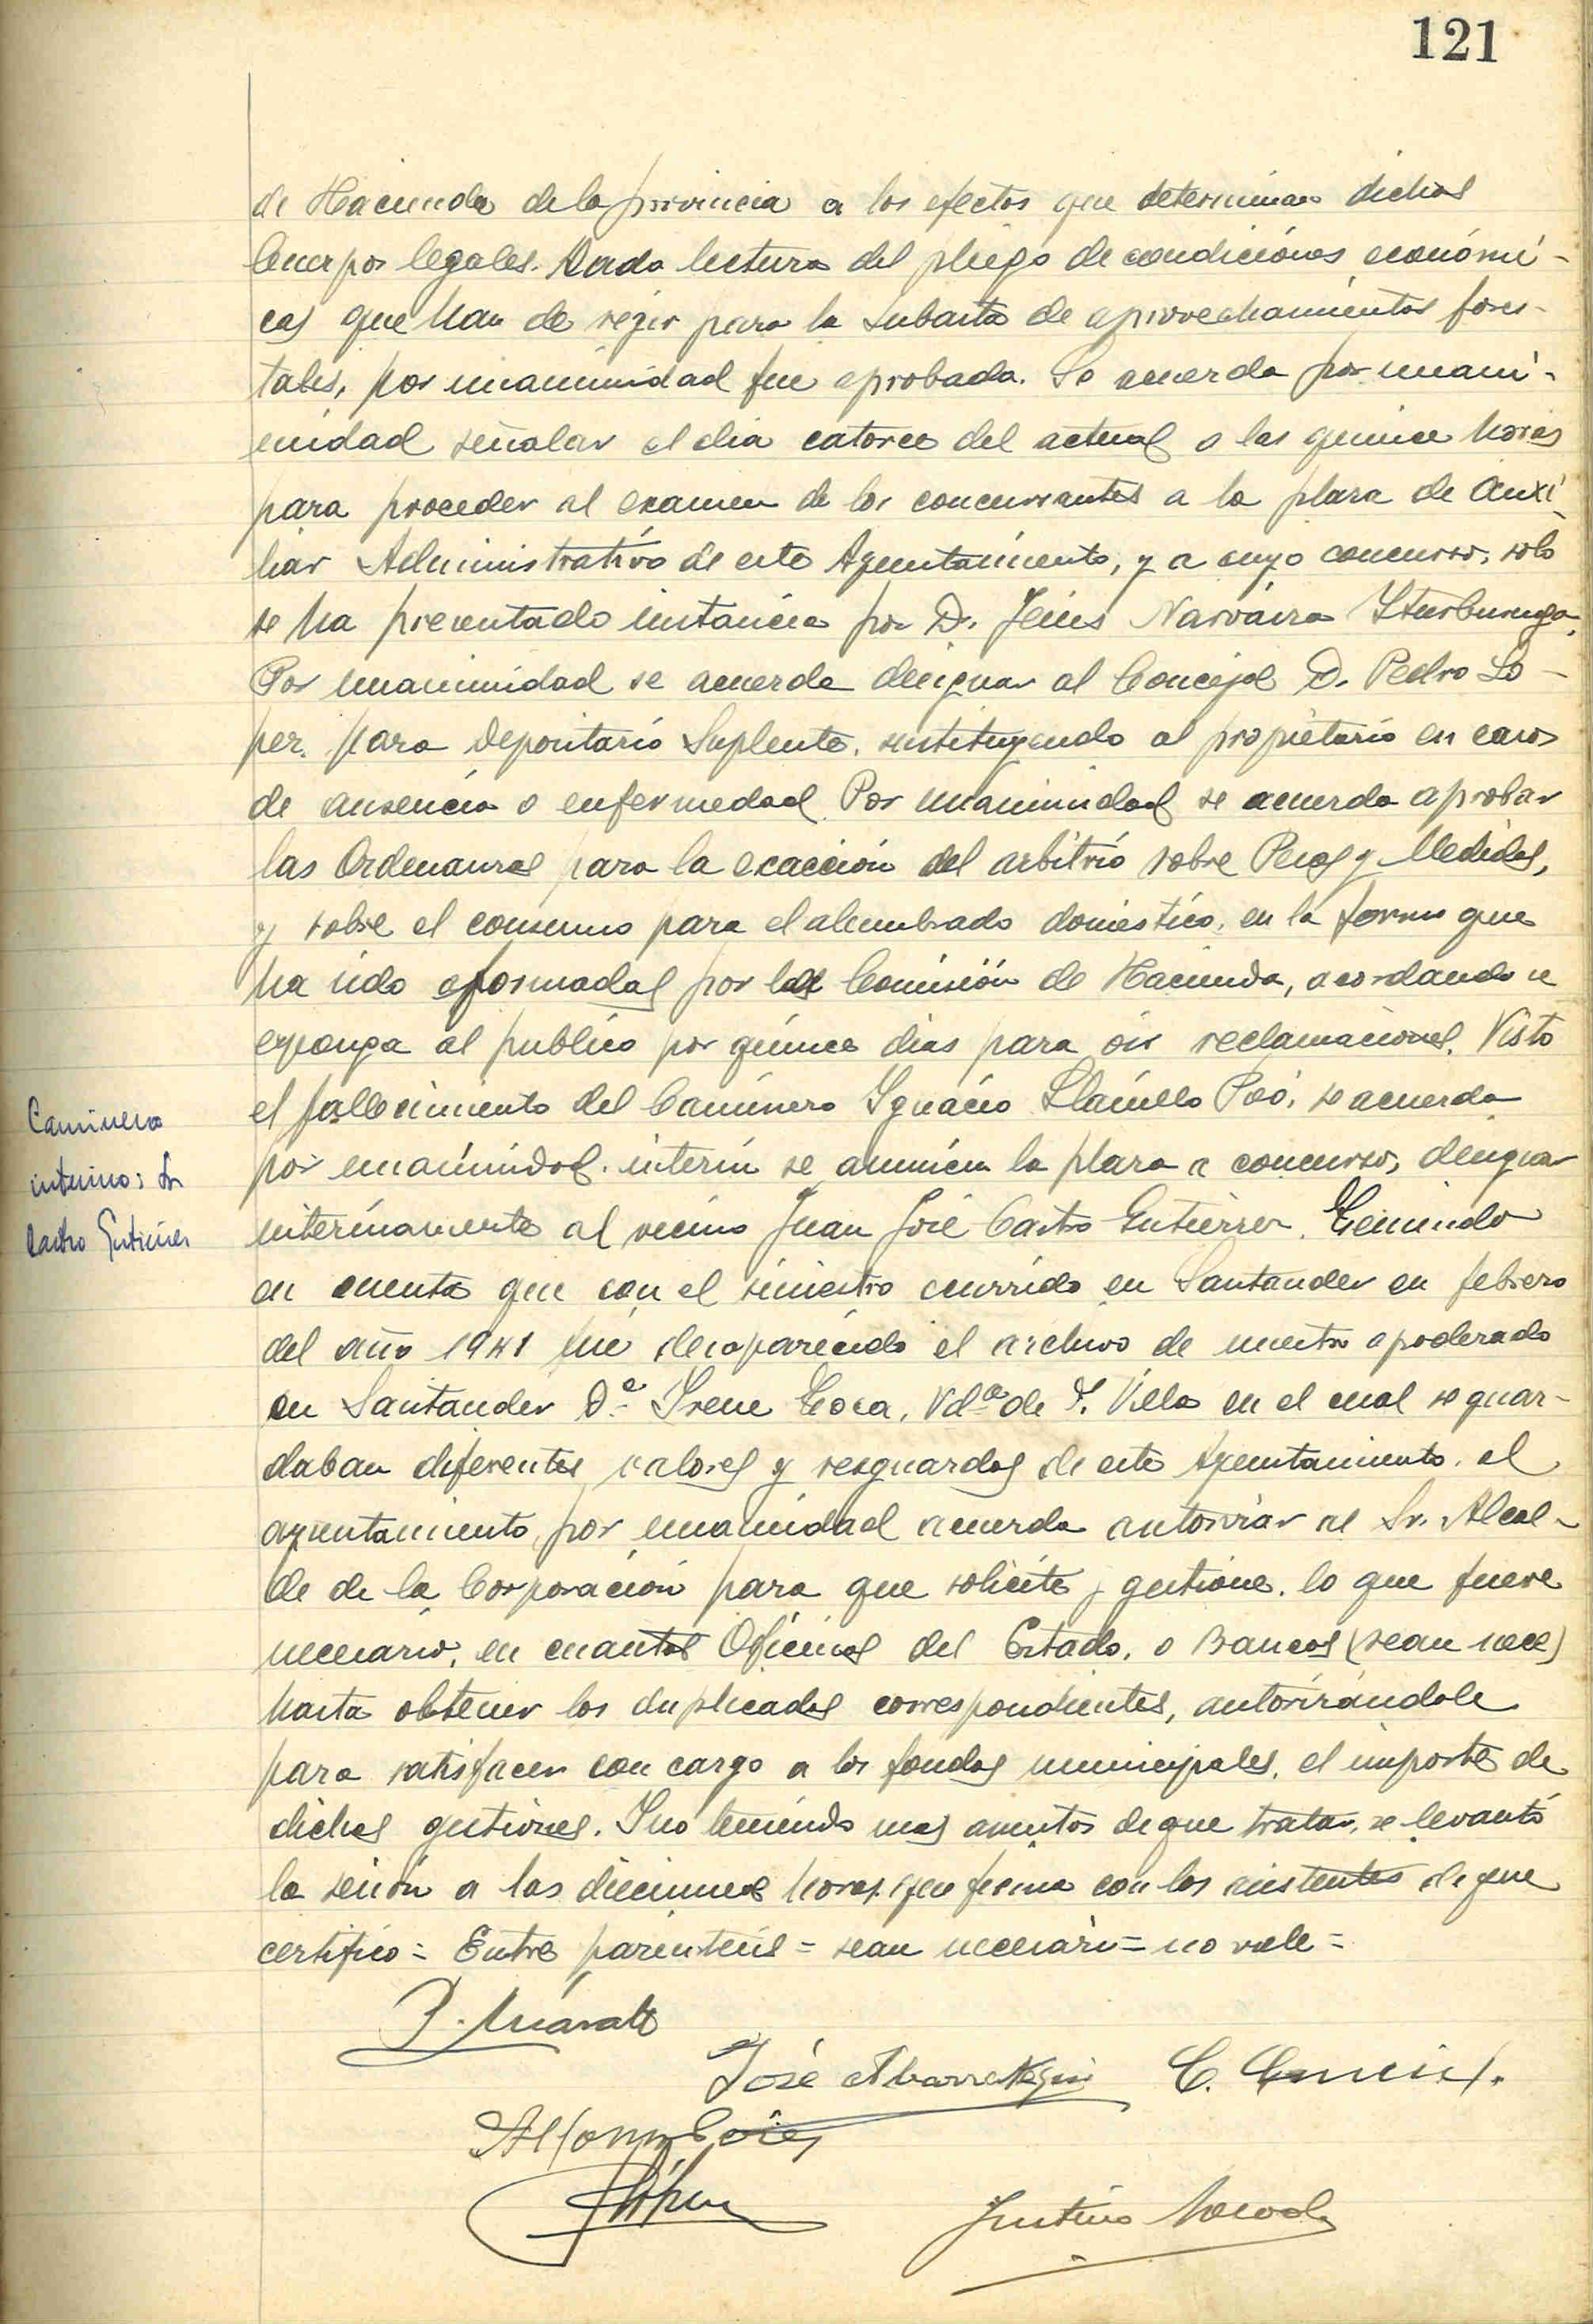 121
de Hacienda de la provincia a los efectos que determinan dichos
Cuerpos legales. Dada lectura del pliego de condiciones económi-
cas que han de regir para la subasta de aprovechamientos fores-
tales, por unanimidad fue aprobada. Se acuerda por unani-
midad señalar el dia catorce del actual a las quince horas
para proceder al examen de los concursantes a la plaza de Auxi-
liar Administrativo de este Ayuntamiento, y a cuyo concurso, solo
se ha presentado instancia por D. Jesús Narváiza
Por unanimidad se acuerda designar al Concejal D. Pedro Ló-
pez para Depositario Suplente, sustituyendo al propietario en casos
de ausencia o enfermedad. Por unanimidad se acuerda aprobar
las Ordenanzas para la exacción del arbitrio sobre Pesas y Medidas,
y sobre el consumo para el alumbrado doméstico, en la forma que
ha sido formadas por la Comisión de Hacienda, acordando se
exponga al publico por quince dias para oir reclamaciones. Visto
el fallecimiento del Caminero Ignacio Llanillo Poó, se acuerda
por unanimidad, interin se anuncia la plaza a concurso, designar
interinamente al vecino Juan José Castro Gutiérrez. Teniendo
en cuenta que con el siniestro ocurrido en Santander en febrero
del año 1941 fué desaparecido el archivo de nuestro apoderado
en Santander Dª Irene Toca, Vdª de F. Villa en el cual se guar-
daban diferentes valores y resguardos de este Ayuntamiento, el
ayuntamiento por unanimidad acuerda autorizar al Sr. Alcal-
de de la Corporación para que solicite y gestione, lo que fuere
necesario, en cuantas Oficinas del Estado, o Bancos (sean nece)
hasta obtener los duplicados correspondientes, autorizándole
para satisfacer con cargo a los fondos municipales, el importe de
dichas gestiones. Y no teniendo mas asuntos de que tratar, se levantó
la sesión a las diecinueve horas, que firma con los asistentes de que
certifico = Entre paréntesis = sean necesario = no vale =
Caminero
interino: Sr
Castro Gutierrez
José
López
Justino